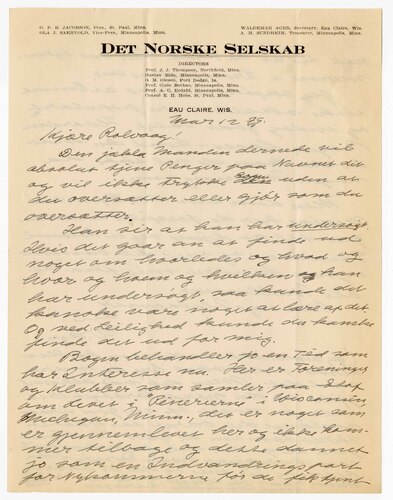 O. P. B. JACOBSON, Pres., St. Paul, Minn.
OLA J. SAERVOLD, Vice-Pres., Minneapolis, Minn.
WALDEMAR AGER, Secretary, Eau Claire, Wis.
A. M. SUNDHEIM, Treasurer, Minneapolis, Minn.
DET NORSKE SELSKAB
DIRECTORS
Prof. J. J. Thompson, Northfield, Minn.
Gustav Eide, Minneapolis, Minn.
O. M. Olesen, Fort Dodge, Ia.
Prof. Gisle Bothne, Minneapolis, Minn.
Prof. A. C. Erdahl, Minneapolis, Minn.
Consul E. H. Hobe, St. Paul, Minn.
EAU CLAIRE, WIS.
Mar 12 29
Kjære Rolvaag!
Den jækla Manden dernede vil
absolut tjene Penger paa Navnet dit
og vil ikke trykke Bogen uden at
du oversætter eller gjør som du
oversætter.
Han sir at han har undersøgt.
Hvis det gaar an at finde ud
noget om hvorledes og hvad og
hvor og hvem og hvilken og han
har undersøgt, saa kunde det
kanske være noget at lære af det.
Og ved Leilighed kunde du kanske
finde det ud for mig.
Bogen behandler jo en Tid som
har Interesse nu. Her er Foreninger
og Klubber som samler paa Stof
om Livet i "Pineriern" i Wisconsin,
Michigan, Minn., det er noget som
er gjennemlevet her og ikke kom-
mer tilbage og dette dannet
jo som en Indvandrings port
for Nykommerne før de fik kjent